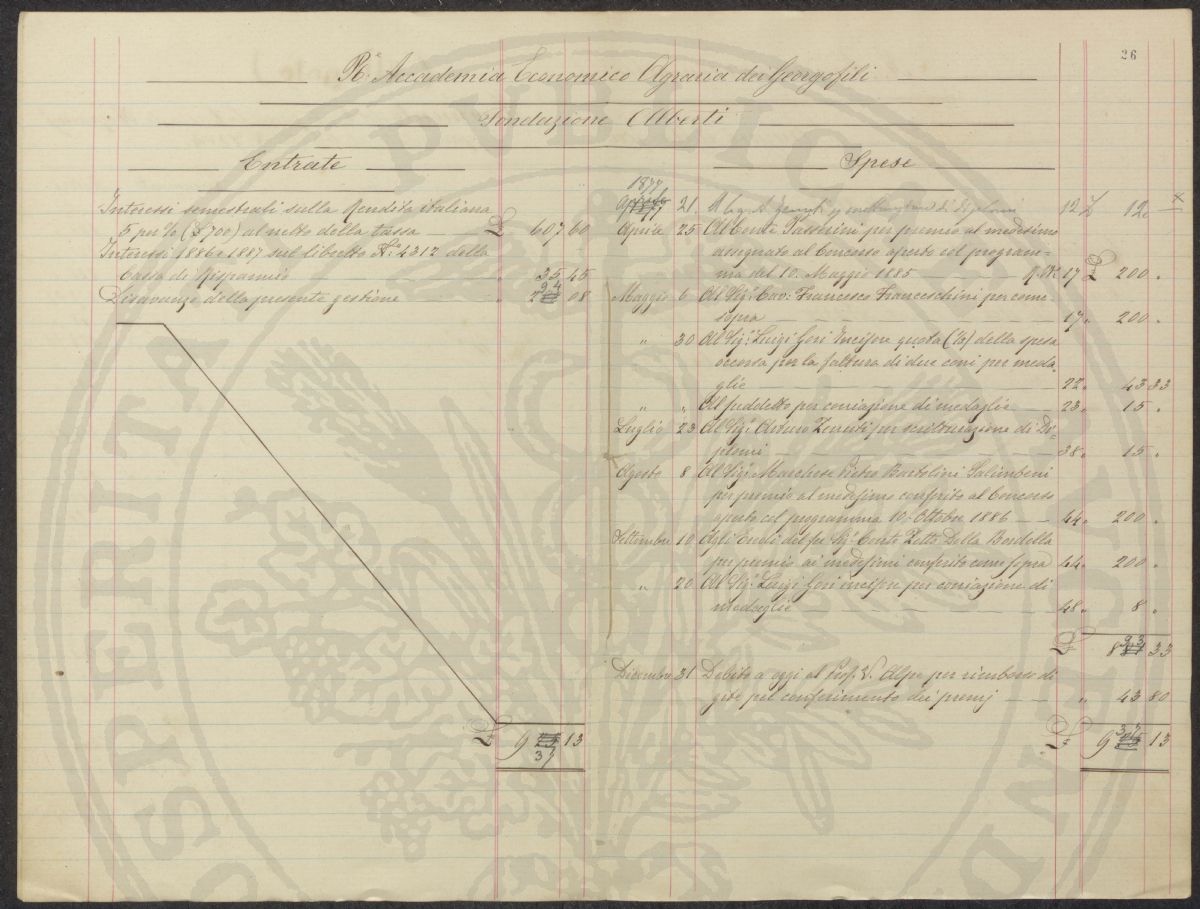 26
R.ª Accademia Economico Agraria dei Georgofili
Fondazione Alberti
Entrate
Interessi semestrali sulla Rendita italiana
5 per % (£ 700) al netto della tassa £ 607 60
Interessi 1886 e 1887 sul libretto N.º 4312 della
Cassa di Risparmio " 35 45
Disavanzo della presente gestione " 294 08
£ 937 13
Spese
1877
21 12 £ 12 "
Aprile 25 Al Conte Passerini per premio al medesimo
assegnato al Concorso aperto col program-
ma del 10. Maggio 1885 17 £ 200 "
Maggio 6 Al Sig.r Cav: Francesco Franceschini per come
sopra 17 " 200 "
" 30 Al Sig.r Luigi Gori Incisore quota (⅓) della spesa
occorsa per la fattura di due coni per meda-
glie 22 " 43 33
" " Al suddetto per coniazione di medaglie 23 " 15 "
Luglio 23 Al Sig.r Arturo per scritturazione di Di-
plomi 38 " 15 "
Agosto 8 Al Sig.r Marchese Pietro Bartolini Salimbeni
per premio al medesimo conferito al Concorso
aperto col programma 10. Ottobre 1886 44 " 200 "
Settembre 10 Agli Eredi del fu Sig.r Conte Della Gherardesca
per premio ai medesimi conferito come sopra 44 " 200 "
" 20 Al Sig.r Luigi Gori incisore per coniazione di
medaglie 48 " 8 "
£ 893 33
Dicembre 31 Debito a oggi al Prof. V. Alpe per rimborso di
gite pel conferimento dei premj " 43 80
£ 937 13
SPERITA PVBLICA